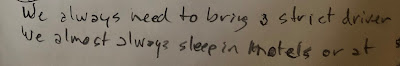 We always need to bring a strict driver
We almost always sleep in motels or at